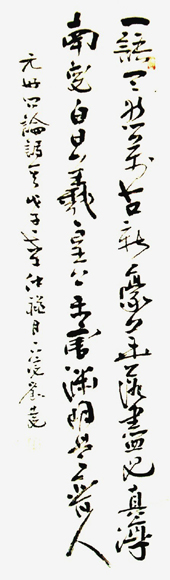 一語天然萬古新豪華落盡見真淳
南窗白日羲皇上未害淵明是晉人
元好問論詩 戊子